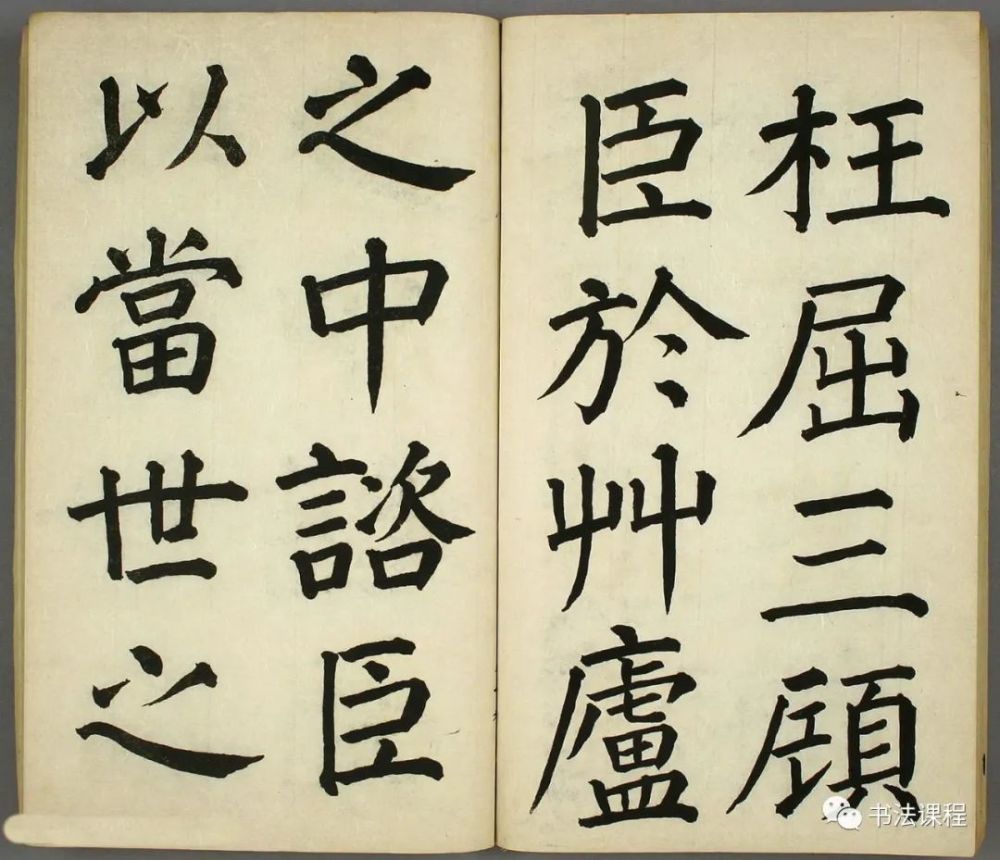 枉屈三顧
臣於艸廬
之中諮臣
以當世之
书法课程